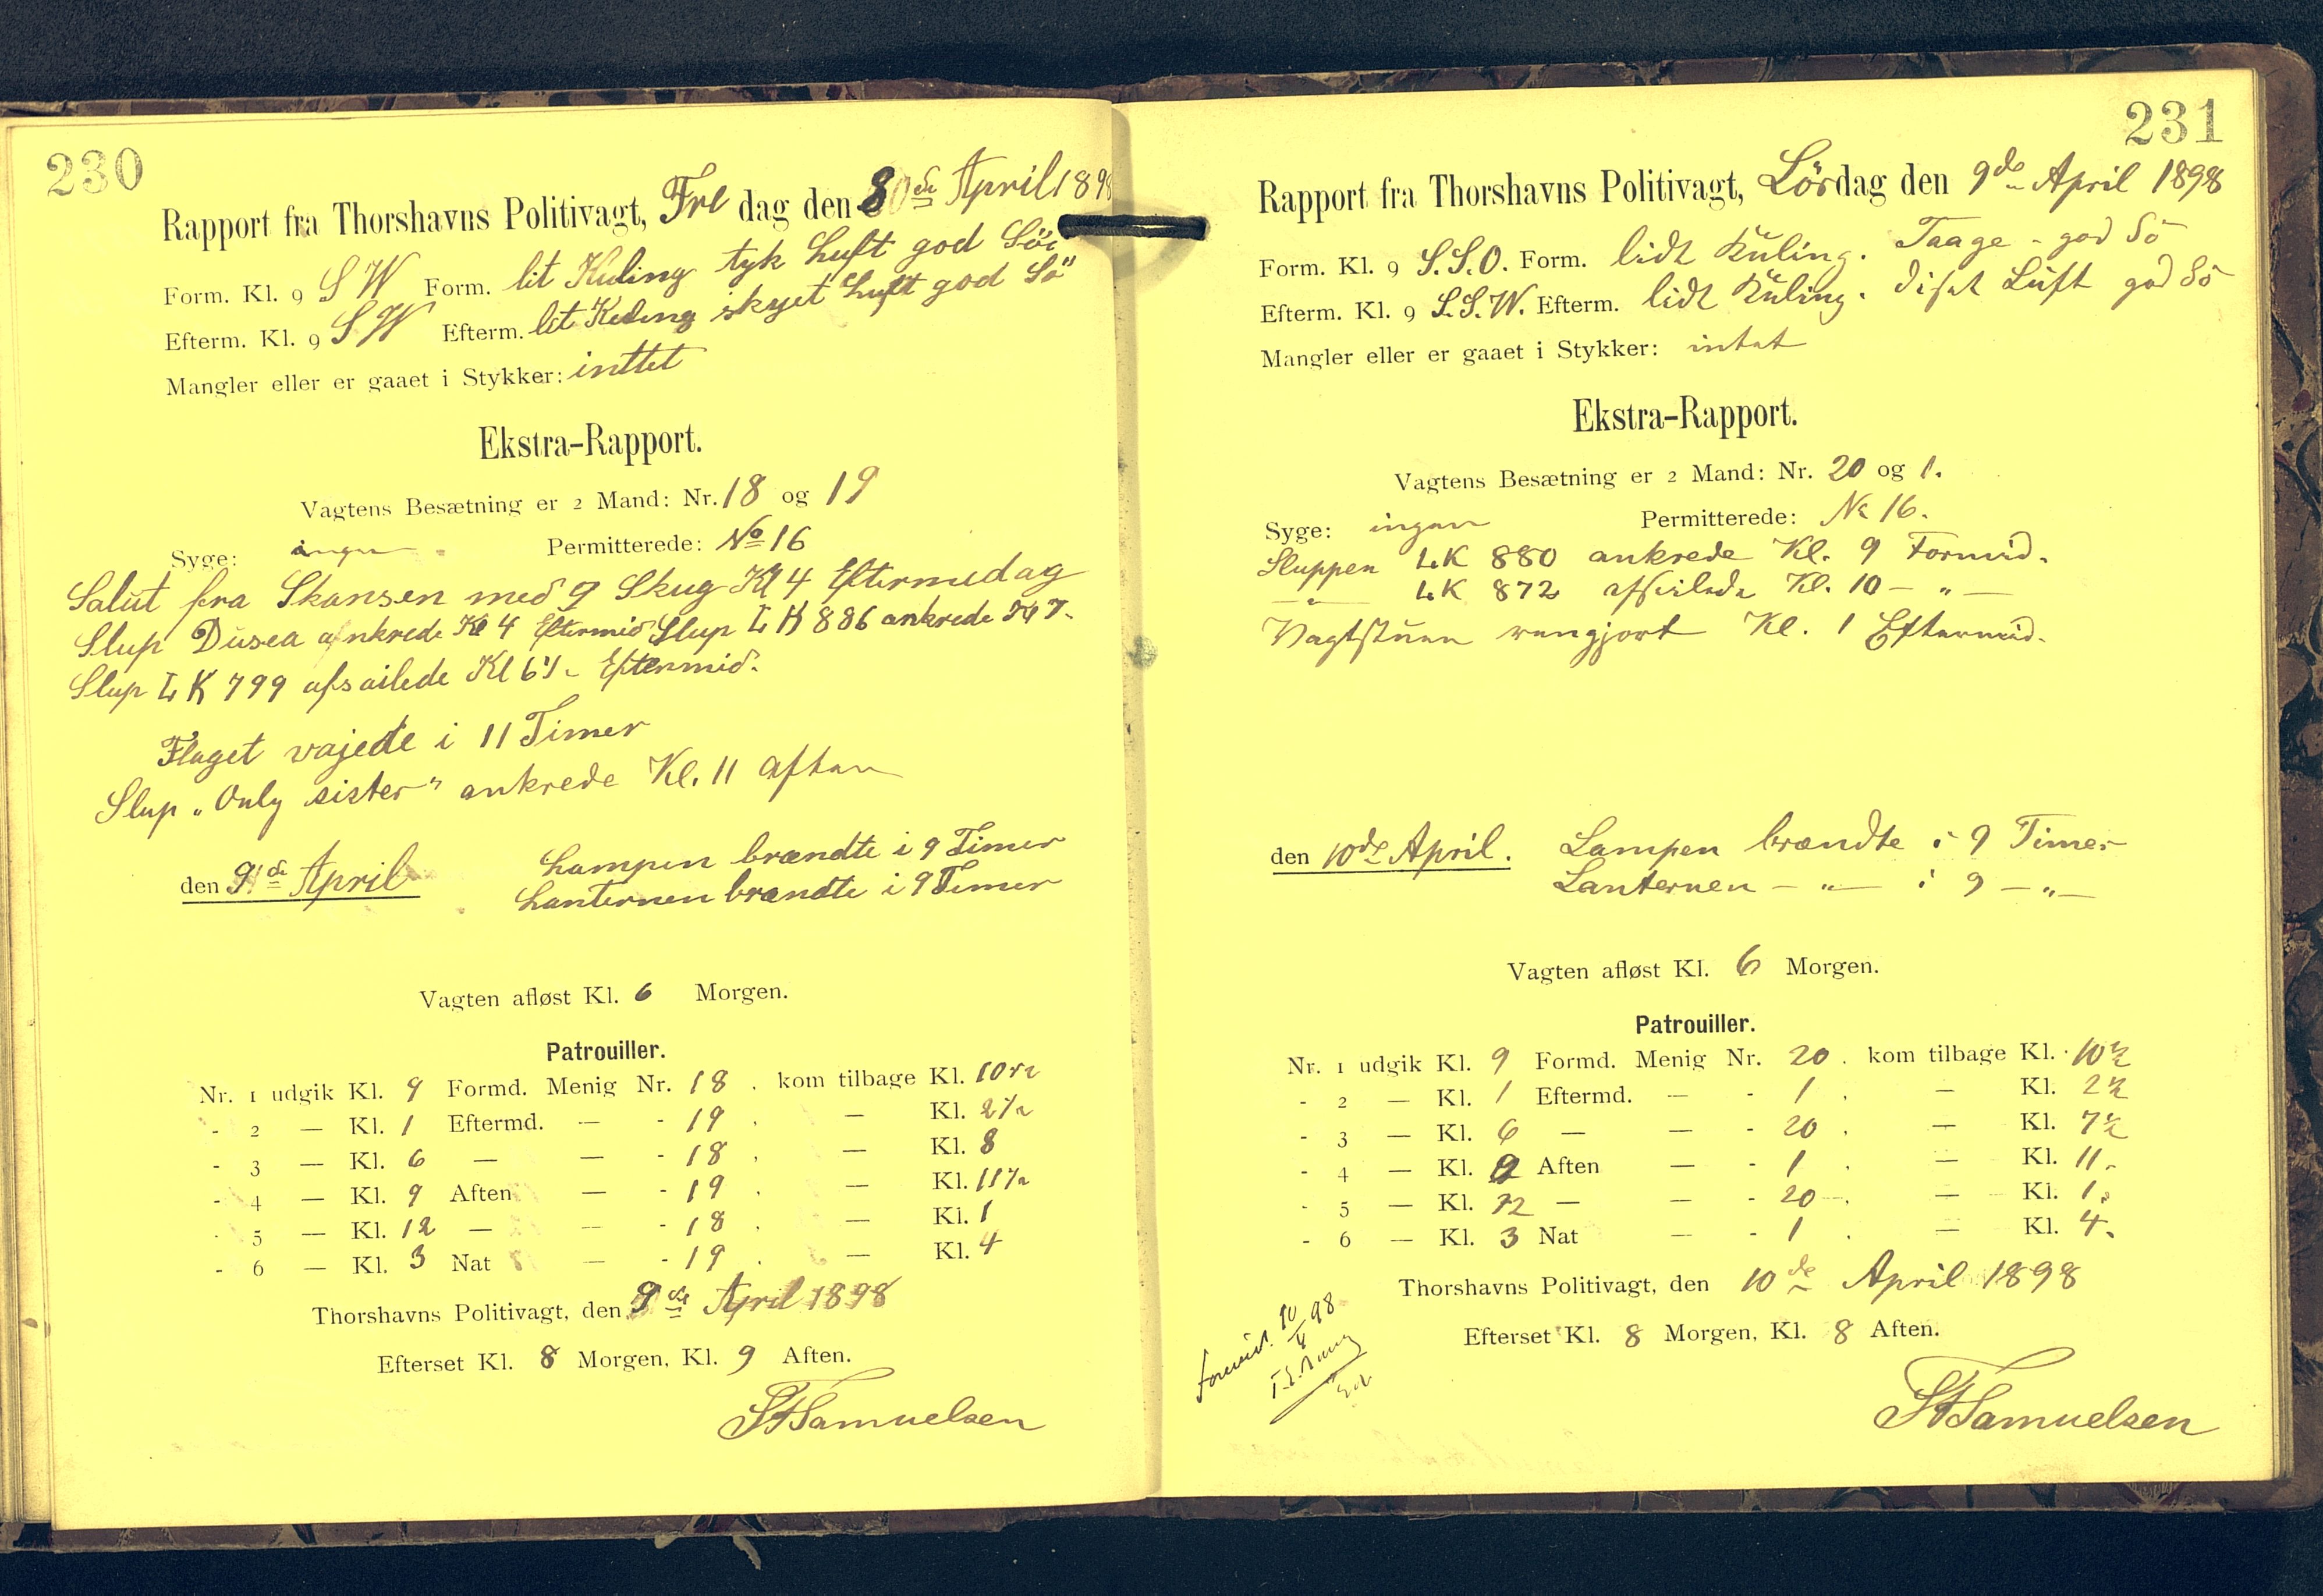 230
Rapport fra Thorshavns Politivagt, Fre dag den 8de April 1898
Form. Kl. 9 SW Form. lit Kuling tyk Luft god Sö
Efterm. Kl. 9 SW Efterm. lit Kuling skyet Luft god Sö
Mangler eller er gaaet i Stykker: inttet
Ekstra-Rapport.
Vagtens Besætning er 2 Mand: Nr. 18 og 19
Syge: ingen Permitterede: No 16
Salut fra Skansen med 9 Skug Kl 4 Eftermedag
Slup Dusea ankrede Kl 4 Eftermid Slup LK 886 ankrede Kl 7.
Slup LK 799 afsailede Kl 6 Eftermid.
Flaget vajede i 11 Timer
Slup „Only sister" ankrede Kl. 11 Aften
den 9de April Lampen brændte i 9 Timer
Lanternen brændte i 9 Timer
Vagten afløst Kl. 6 Morgen.
Patrouiller.
Nr. 1 udgik Kl. 9 Formd. Menig Nr. 18 . kom tilbage Kl. 10 ½
- 2 — Kl. 1 Eftermd. — - 19 . — Kl. 2 ½
- 3 — Kl. 6 — — - 18 . — Kl. 8
- 4 — Kl. 9 Aften — - 19 . — Kl. 11 ½
- 5 — Kl. 12 — — - 18 . — Kl. 1
- 6 — Kl. 3 Nat — - 19 . — Kl. 4
Thorshavns Politivagt, den 9de April 1898
Efterset Kl. 8 Morgen, Kl. 9 Aften.
Samuelsen
231
Rapport fra Thorshavns Politivagt, Lörsdag den 9de April 1898
Form. Kl. 9 S.S.O. Form. lidt Kuling. Taage - god Sö
Efterm. Kl. 9 S.S.W. Efterm. lidt Kuling. diset Luft god Sö
Mangler eller er gaaet i Stykker: intet
Ekstra-Rapport.
Vagtens Besætning er 2 Mand: Nr. 20 og 1.
Syge: ingen Permitterede: No 16.
Sluppen LK 880 ankrede Kl. 9 Formid.
—"— LK 872 afseilede Kl. 10 — " —
Vagtstuen rengjort Kl. 1 Eftermid.
den 10de April. Lampen brændte i 9 Timer
Lanternen — " — i 9 — " —
Vagten afløst Kl. 6 Morgen.
Patrouiller.
Nr. 1 udgik Kl. 9 Formd. Menig Nr. 20 . kom tilbage Kl. 10 ½
- 2 — Kl. 1 Eftermd. — - 1 . — Kl. 2 ½
- 3 — Kl. 6 — — - 20 . — Kl. 7 ½
- 4 — Kl. 9 Aften — - 1 . — Kl. 11.
- 5 — Kl. 12 — — - 20 . — Kl. 1.
- 6 — Kl. 3 Nat — - 1 . — Kl. 4.
Thorshavns Politivagt, den 10de April 1898
Efterset Kl. 8 Morgen, Kl. 8 Aften.
Samuelsen